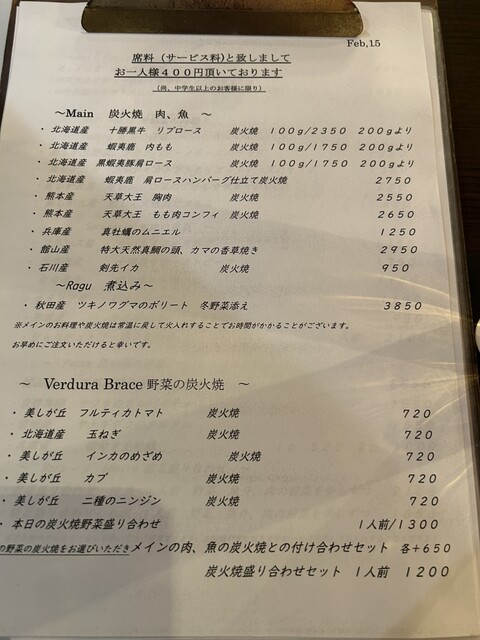 Feb,15
席料（サービス料)と致しまして
お一人様４００円頂いております
（尚、中学生以上のお客様に限り）
～Main　炭火焼　肉、魚　～
・北海道産　十勝黒牛　リブロース　炭火焼　１００ｇ/２３５０　２００ｇより
・北海道産　蝦夷鹿　内もも　炭火焼　１００ｇ/１７５０　２００ｇより
・北海道産　黒蝦夷豚肩ロース　炭火焼　１００ｇ/１７５０　２００ｇより
・北海道産　蝦夷鹿　肩ロースハンバーグ仕立て炭火焼　２７５０
・熊本産　天草大王　胸肉　炭火焼　２５５０
・熊本産　天草大王　もも肉コンフィ　炭火焼　２６５０
・兵庫産　真牡蠣のムニエル　１２５０
・館山産　特大天然真鯛の頭、カマの香草焼き　２９５０
・石川産　剣先イカ　炭火焼　９５０
～Ragu　煮込み～
・秋田産　ツキノワグマのボリート　冬野菜添え　３８５０
※メインのお料理や炭火焼は常温に戻して火入れすることでお時間がかかることがございます。
お早めにご注文いただけると幸いです。
～　Verdura Brace 野菜の炭火焼　～
・美しが丘　フルティカトマト　炭火焼　７２０
・北海道産　玉ねぎ　炭火焼　７２０
・美しが丘　インカのめざめ　炭火焼　７２０
・美しが丘　カブ　炭火焼　７２０
・美しが丘　二種のニンジン　炭火焼　７２０
・本日の炭火焼野菜盛り合わせ　１人前/１３００
の野菜の炭火焼をお選びいただきメインの肉、魚の炭火焼との付け合わせセット　各＋６５０
炭火焼盛り合わせセット　１人前　１２００